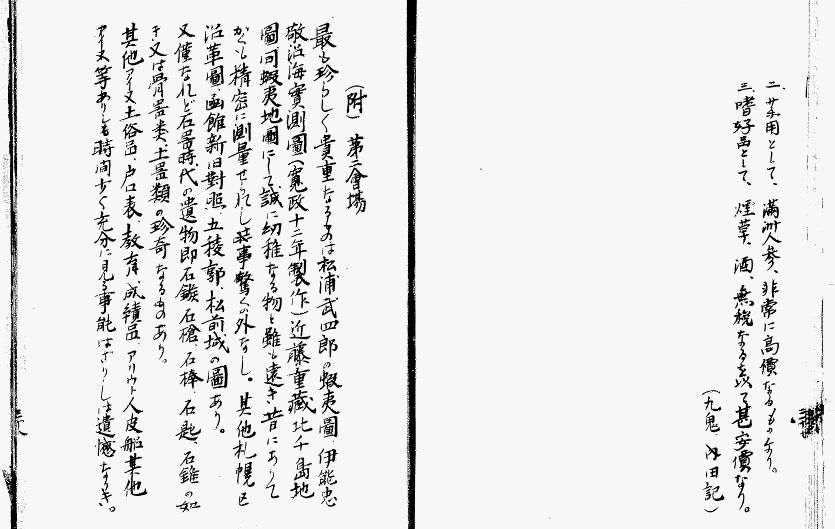 二、サ釆用として、満洲人参、非常に高價なるものなり。
三、嗜好品として、煙草、酒、無税なるを以て甚安價なり。
(九鬼、内田記)
(附)第二會場
最も珍らしく貴重なるものは松浦武四郎の蝦夷圖伊能忠
敬沿海實測圖(寛政十二年製作)近藤重藏北千島地
圖同蝦夷地圖にして誠に幼稚なる物と雖も遠き昔にありて
かくも精密に測量せられし其事驚くの外なし。其他札幌区
沿革圖、函館新旧對照、五稜郭、松前城の圖あり。
又僅なれど石噐時代の遺物即石鏃、石槍、石棒、石匙、石錐の如
き又は骨噐类、土噐類の珍奇なるものあり。
其他アイヌ土俗品、戸口表、教育、成績品、アリウト人皮船其他
アイヌ等ありしも時間少く充分に見る事能はざりしは遺憾なりき。